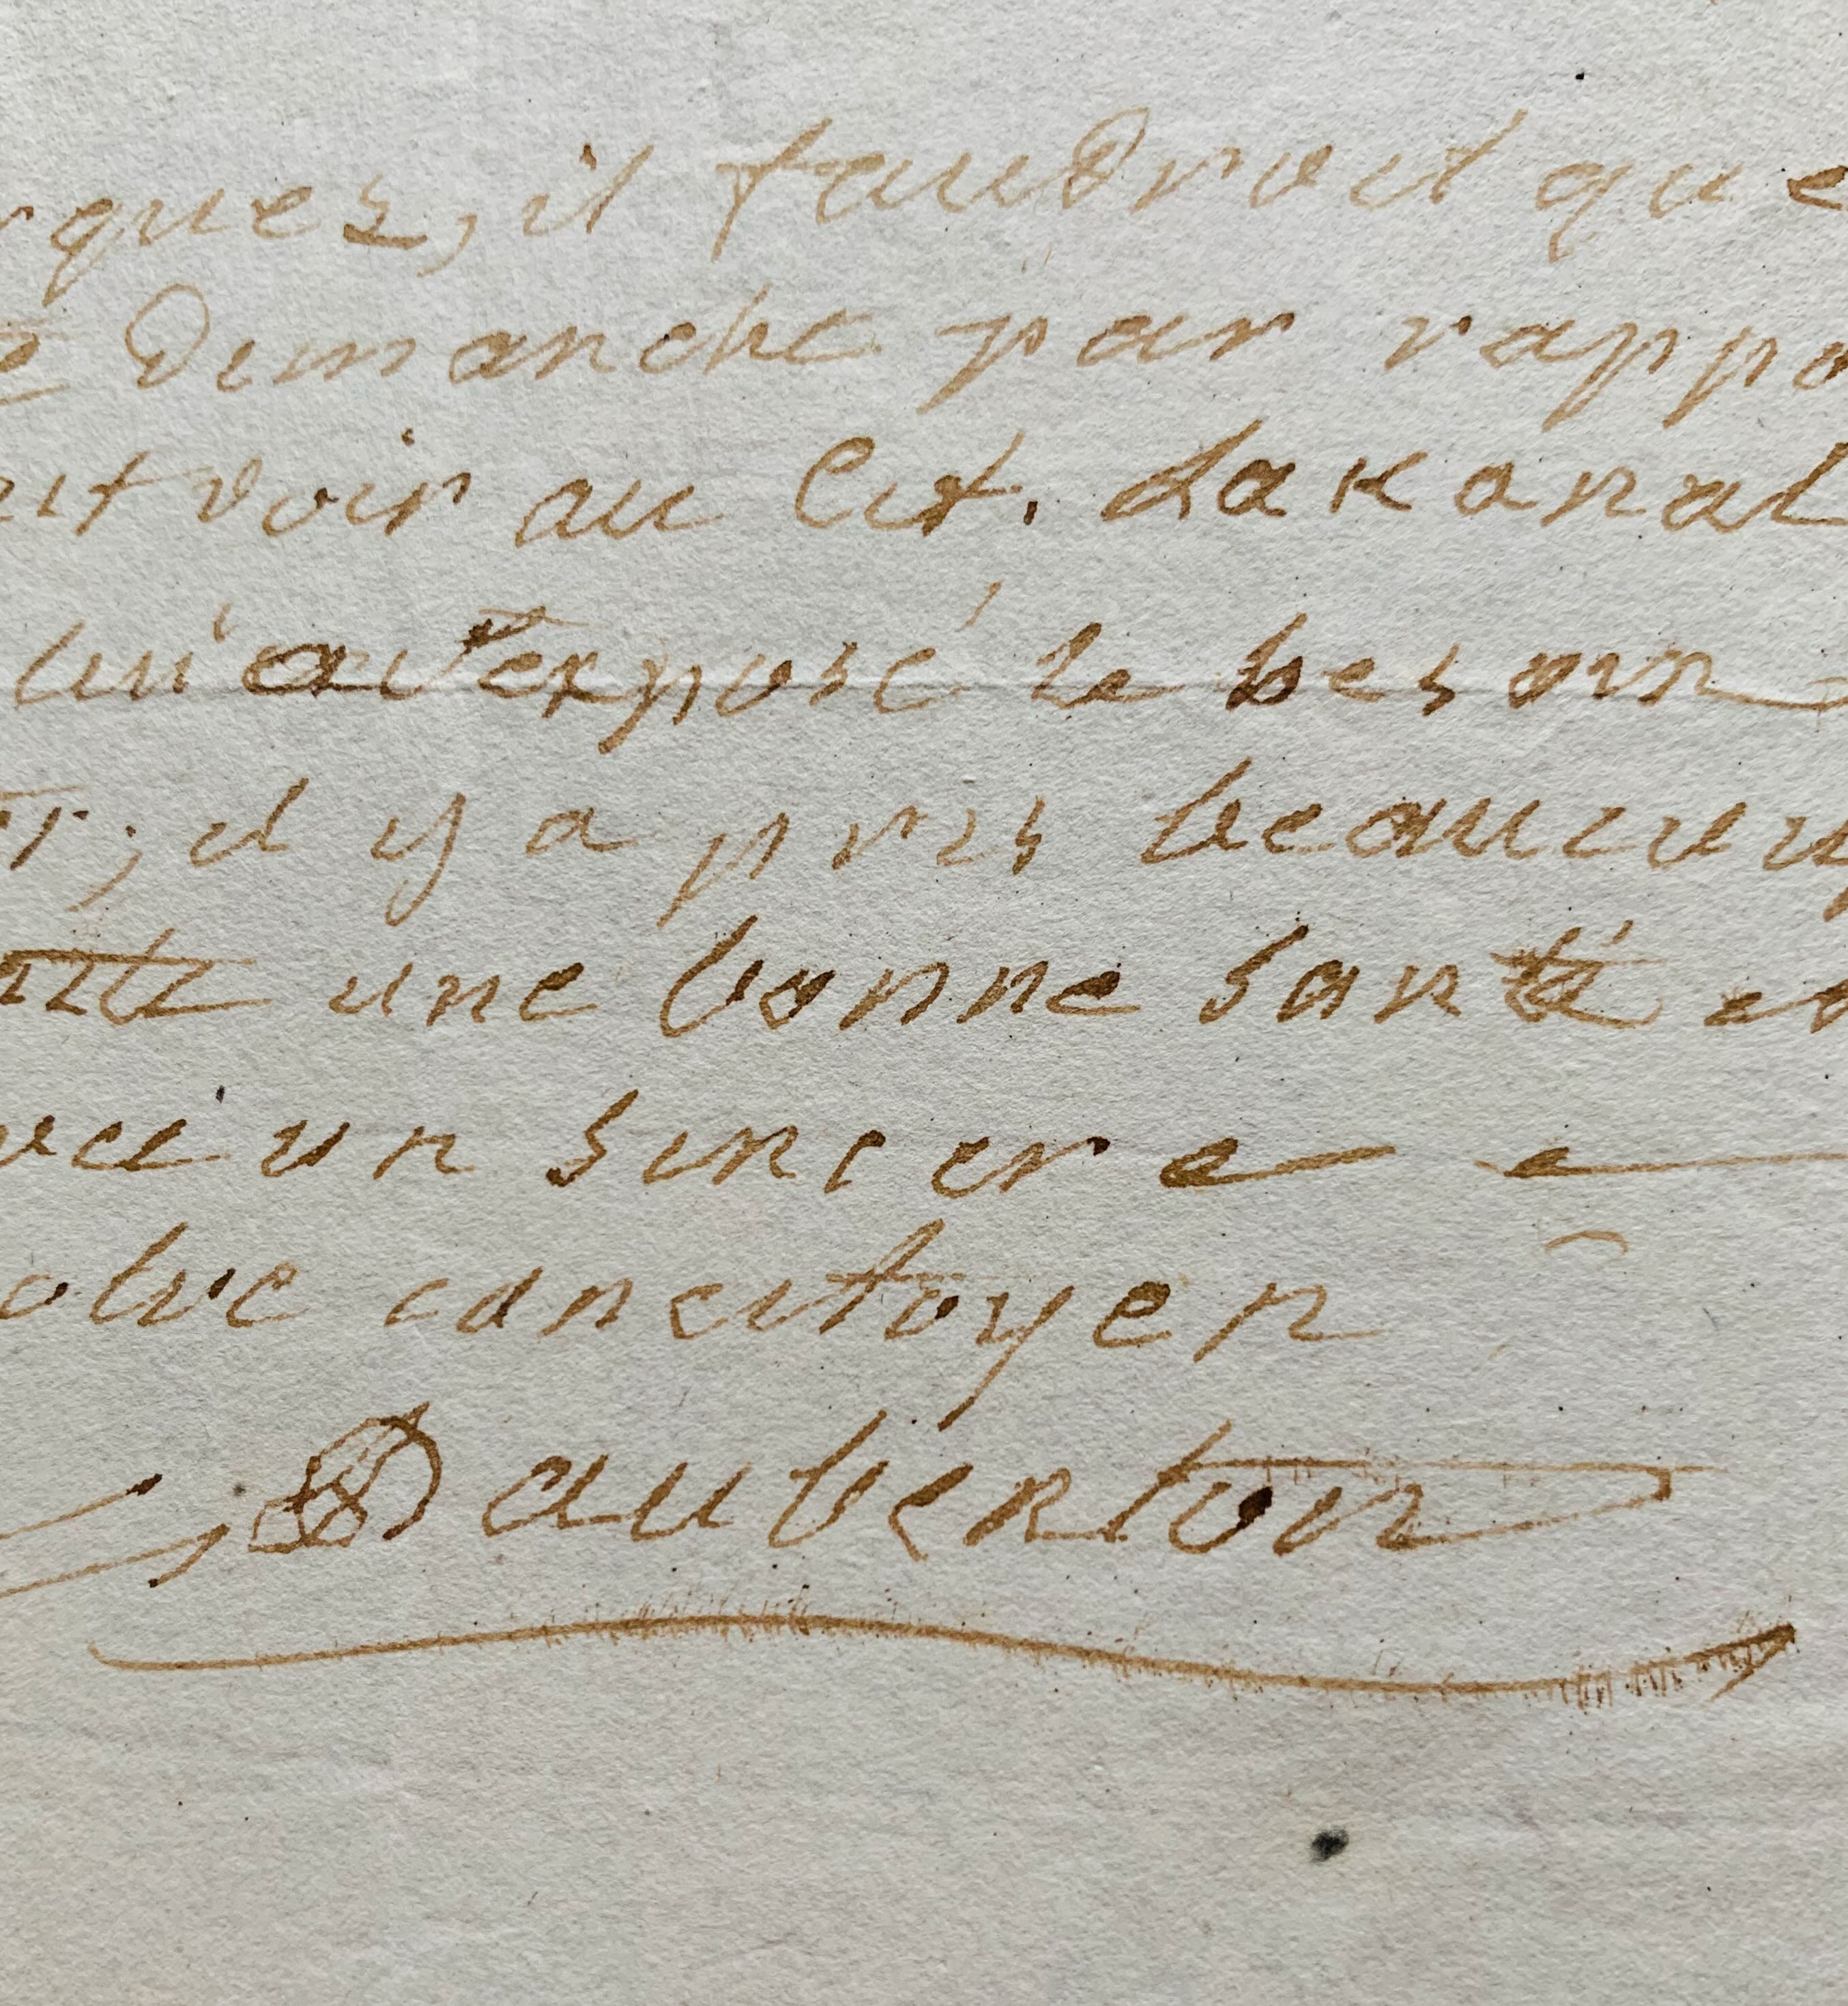 rques, il faudroit que
Dimanche par rappo
voir au Cit. Lakanal
lui a exposé le besoin
; il y a pris beaucoup
une bonne santé et
vec un sincere
otre concitoyen
Daubenton